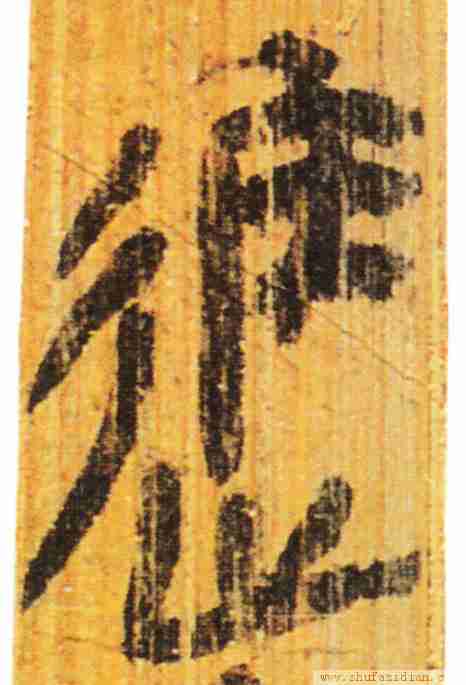 進
www.shufazidian.c